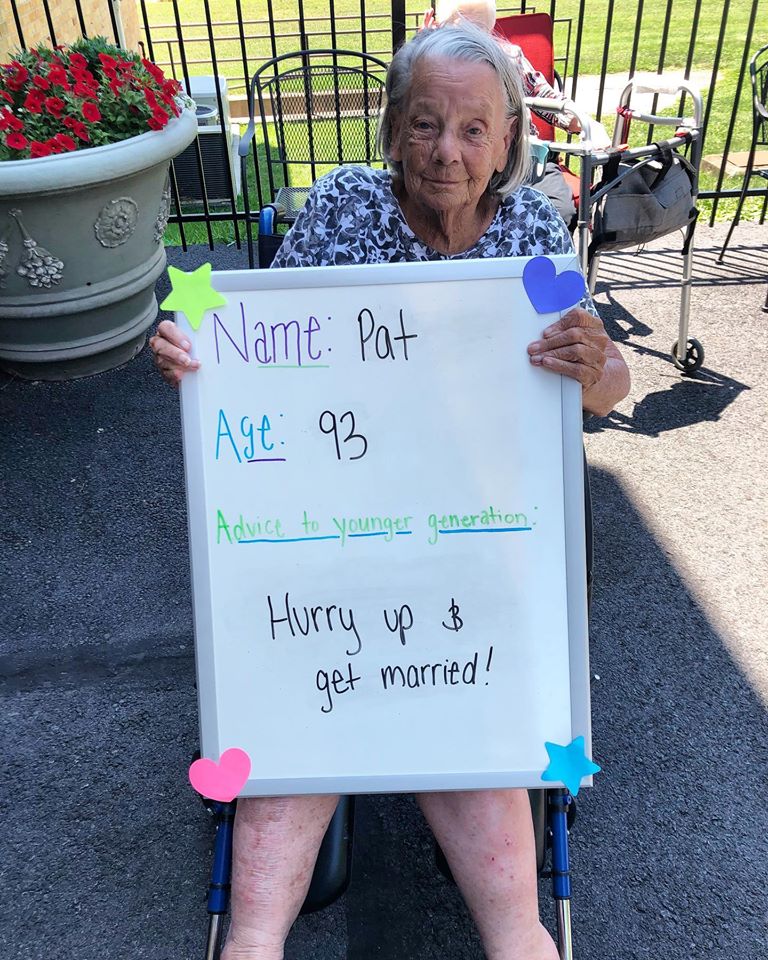 Name: Pat
Age: 93
Advice to younger generation:
Hurry up &
get married!